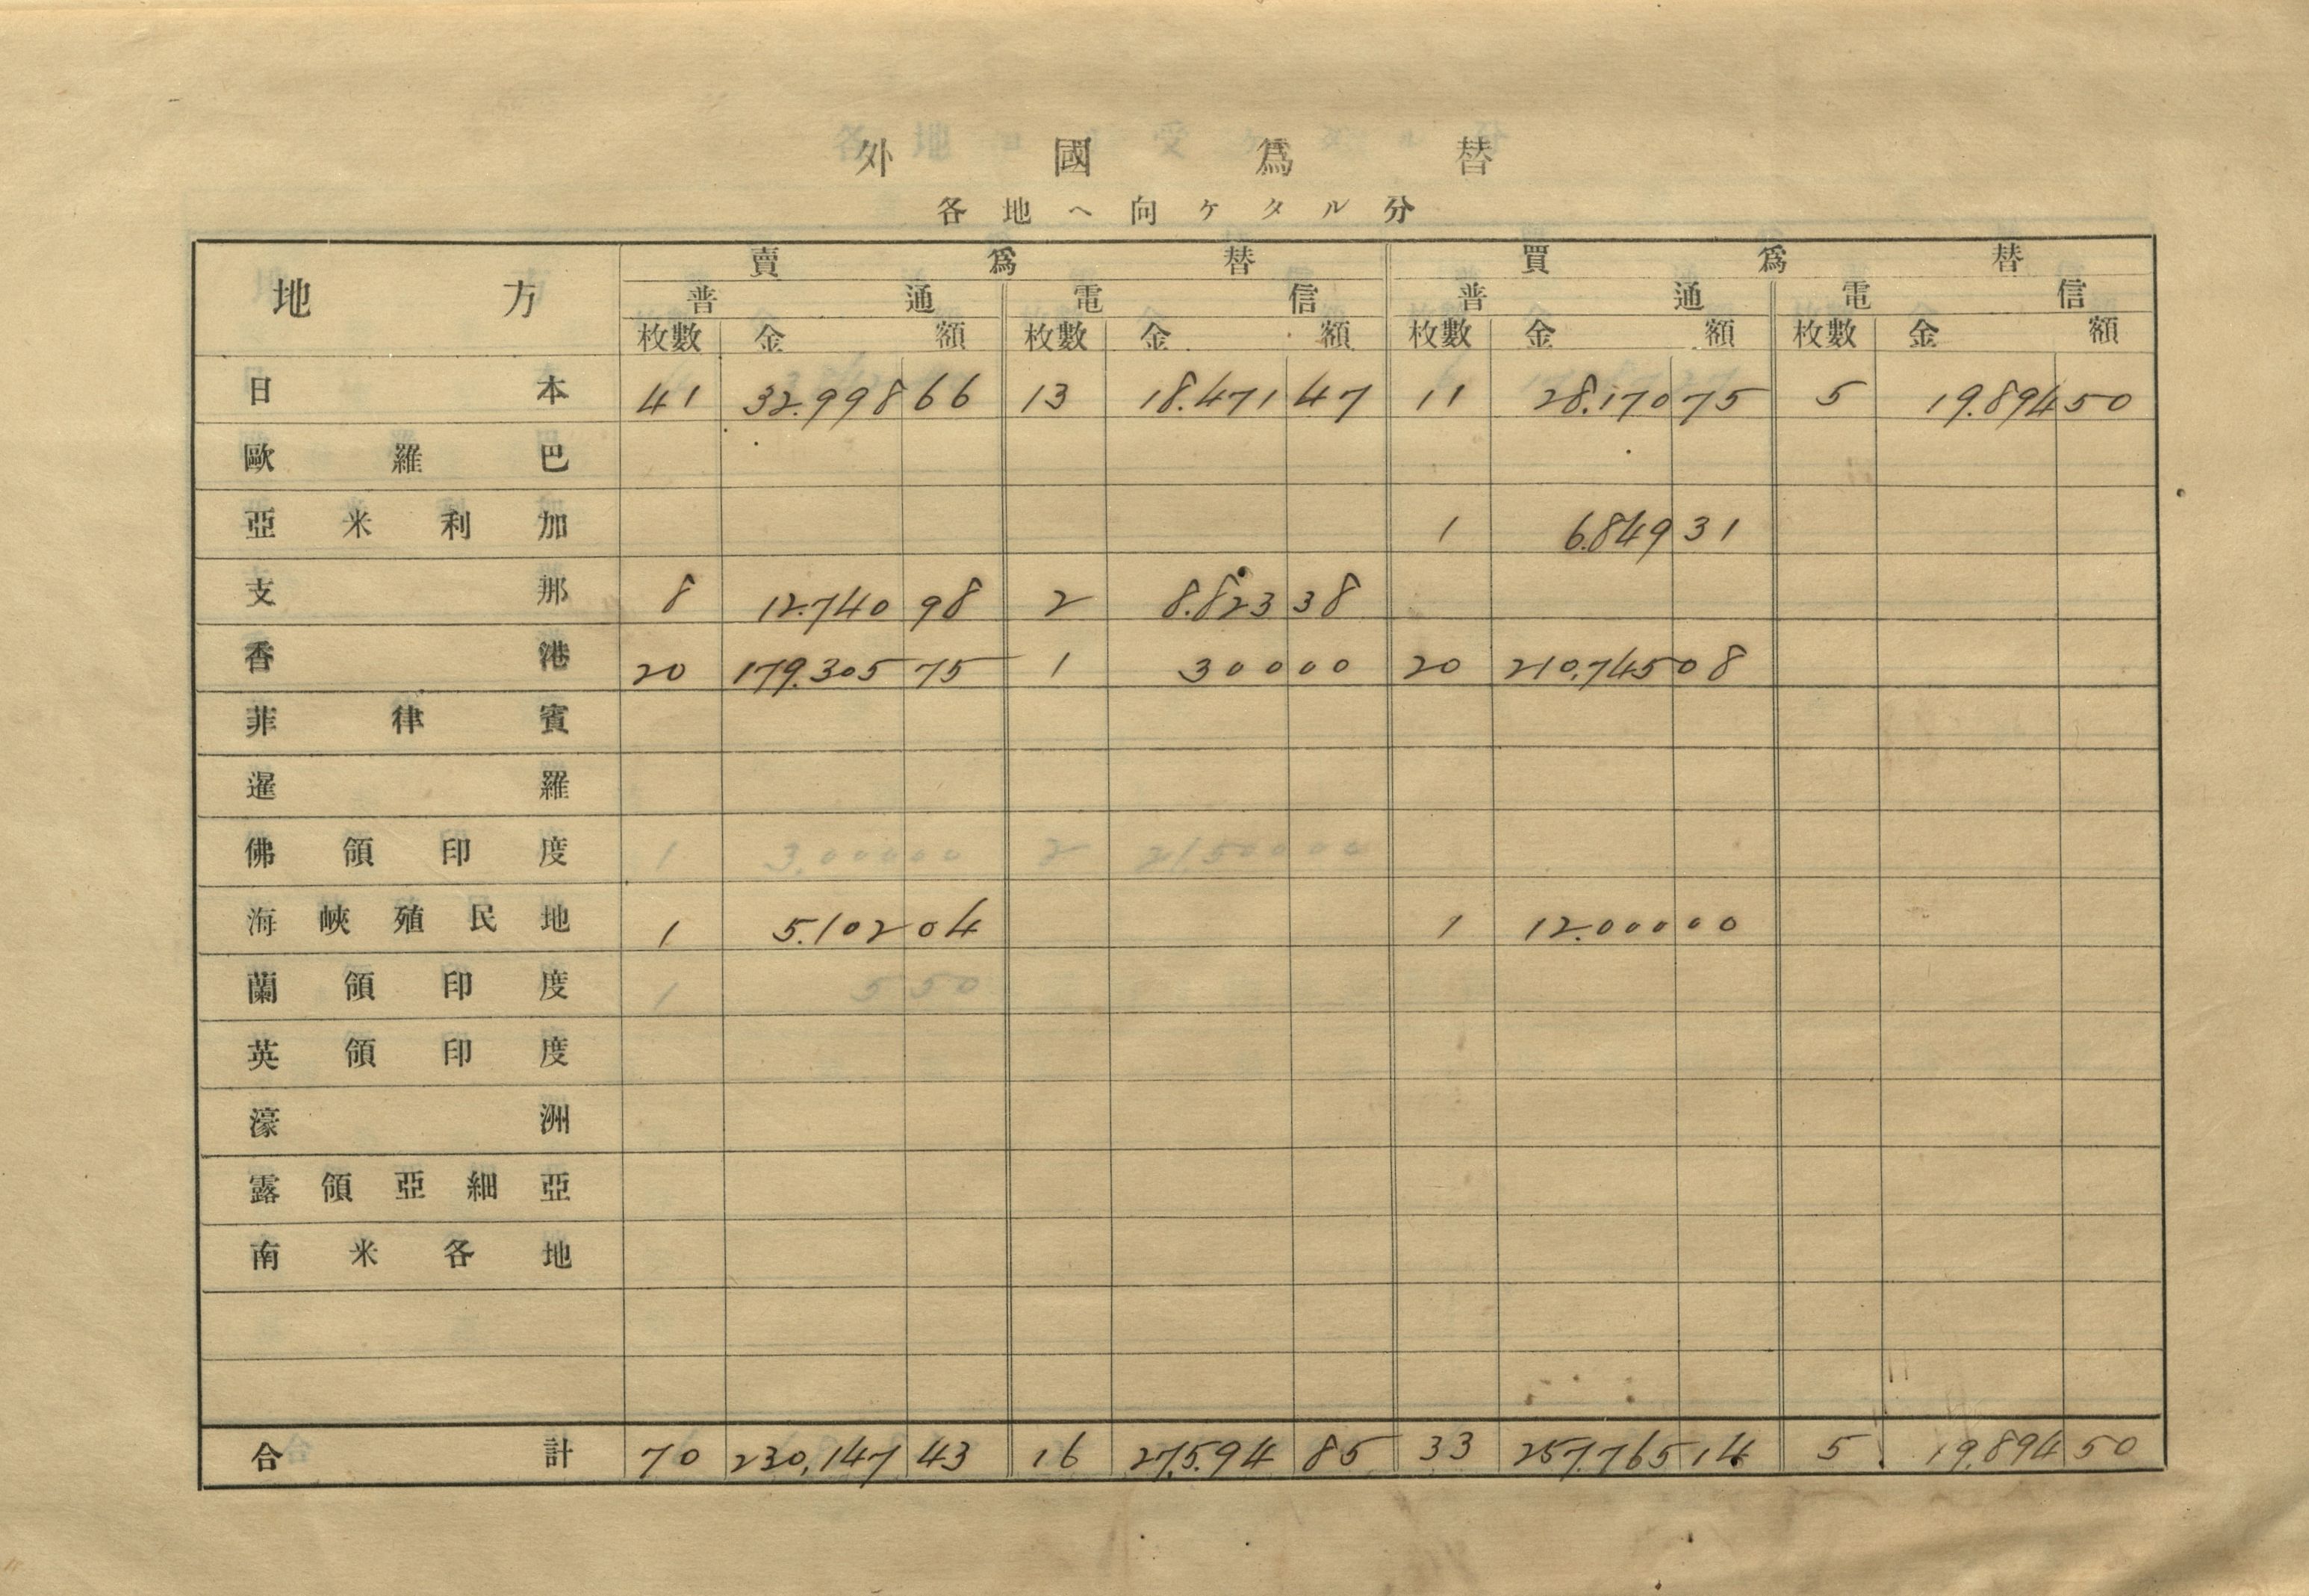 外國爲替
各地ヘ向ケタル分
地方 賣爲替 買爲替
普通 電信 普通 電信
枚數 金額 枚數 金額 枚數 金額 枚數 金額
日本 41 32.998 66 13 18.471 47 11 28.170 75 5 19.894 50
歐羅巴
亞米利加 1 6.849 31
支那 8 12.740 98 2 8.823 38
香港 20 179.305 75 1 300 00 20 210,745 08
菲律賓
暹羅
佛領印度
海峽殖民地 1 5.102 04 1 12.000 00
蘭領印度
英領印度
濠洲
露領亞細亞
南米各地
合計 70 230,147 43 16 27,594 85 33 257,765 14 5 19.894 50